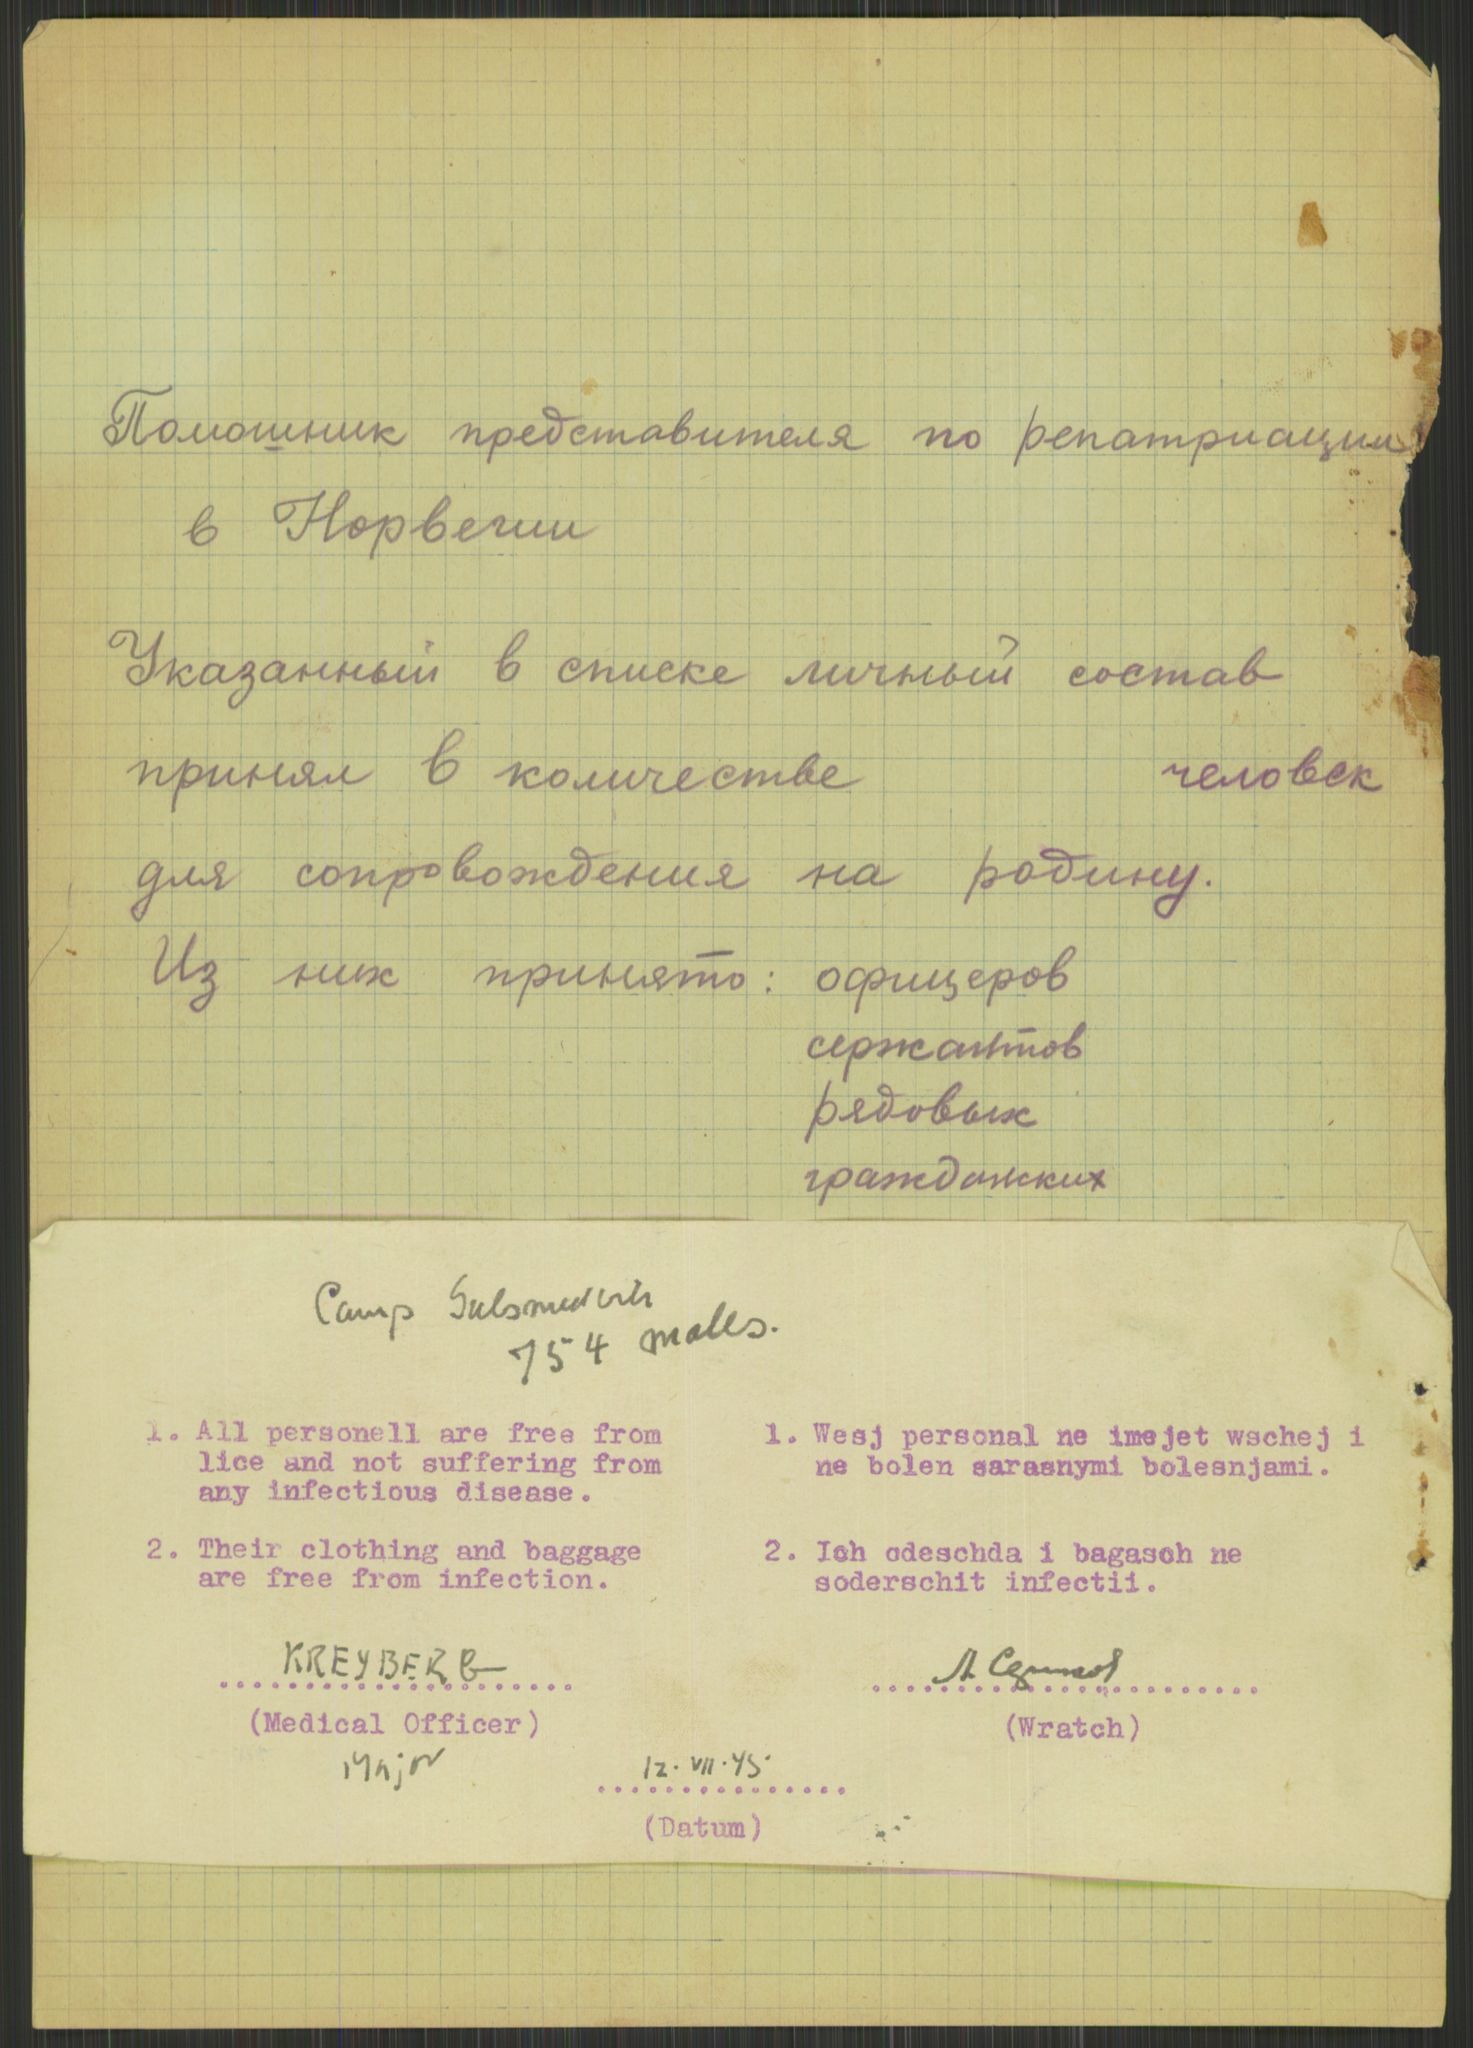 Помошник представителя по репатриации
в Норвегии
Указанный в списке личный состав
принял в количестве человек
для сопровождения на родину.
Из них принято: офицеров
сержантов
рядовых
гражданских
Camp
754 males.
1. All personell are free from
lice and not suffering from
any infectious disease.
2. Their clothing and baggage
are free from infection.
1. Wesj personal ne imejet wschej i
ne bolen sarasnymi bolesnjami.
2. Ich odeschda i bagasch ne
soderschit infectii.
KREYBERG
(Medical Officer)
Major
(Wratch)
12.VII.45.
(Datum)